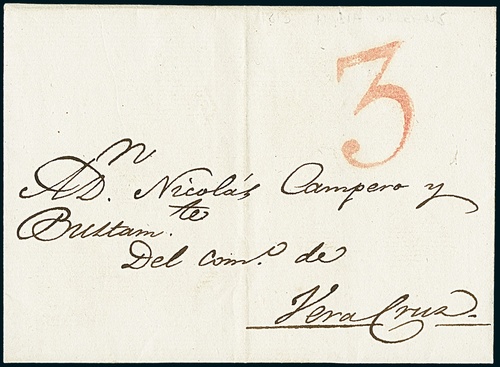 3
A D.n Nicolás Campero y
Bustam.te
Del com.o de
Vera Cruz